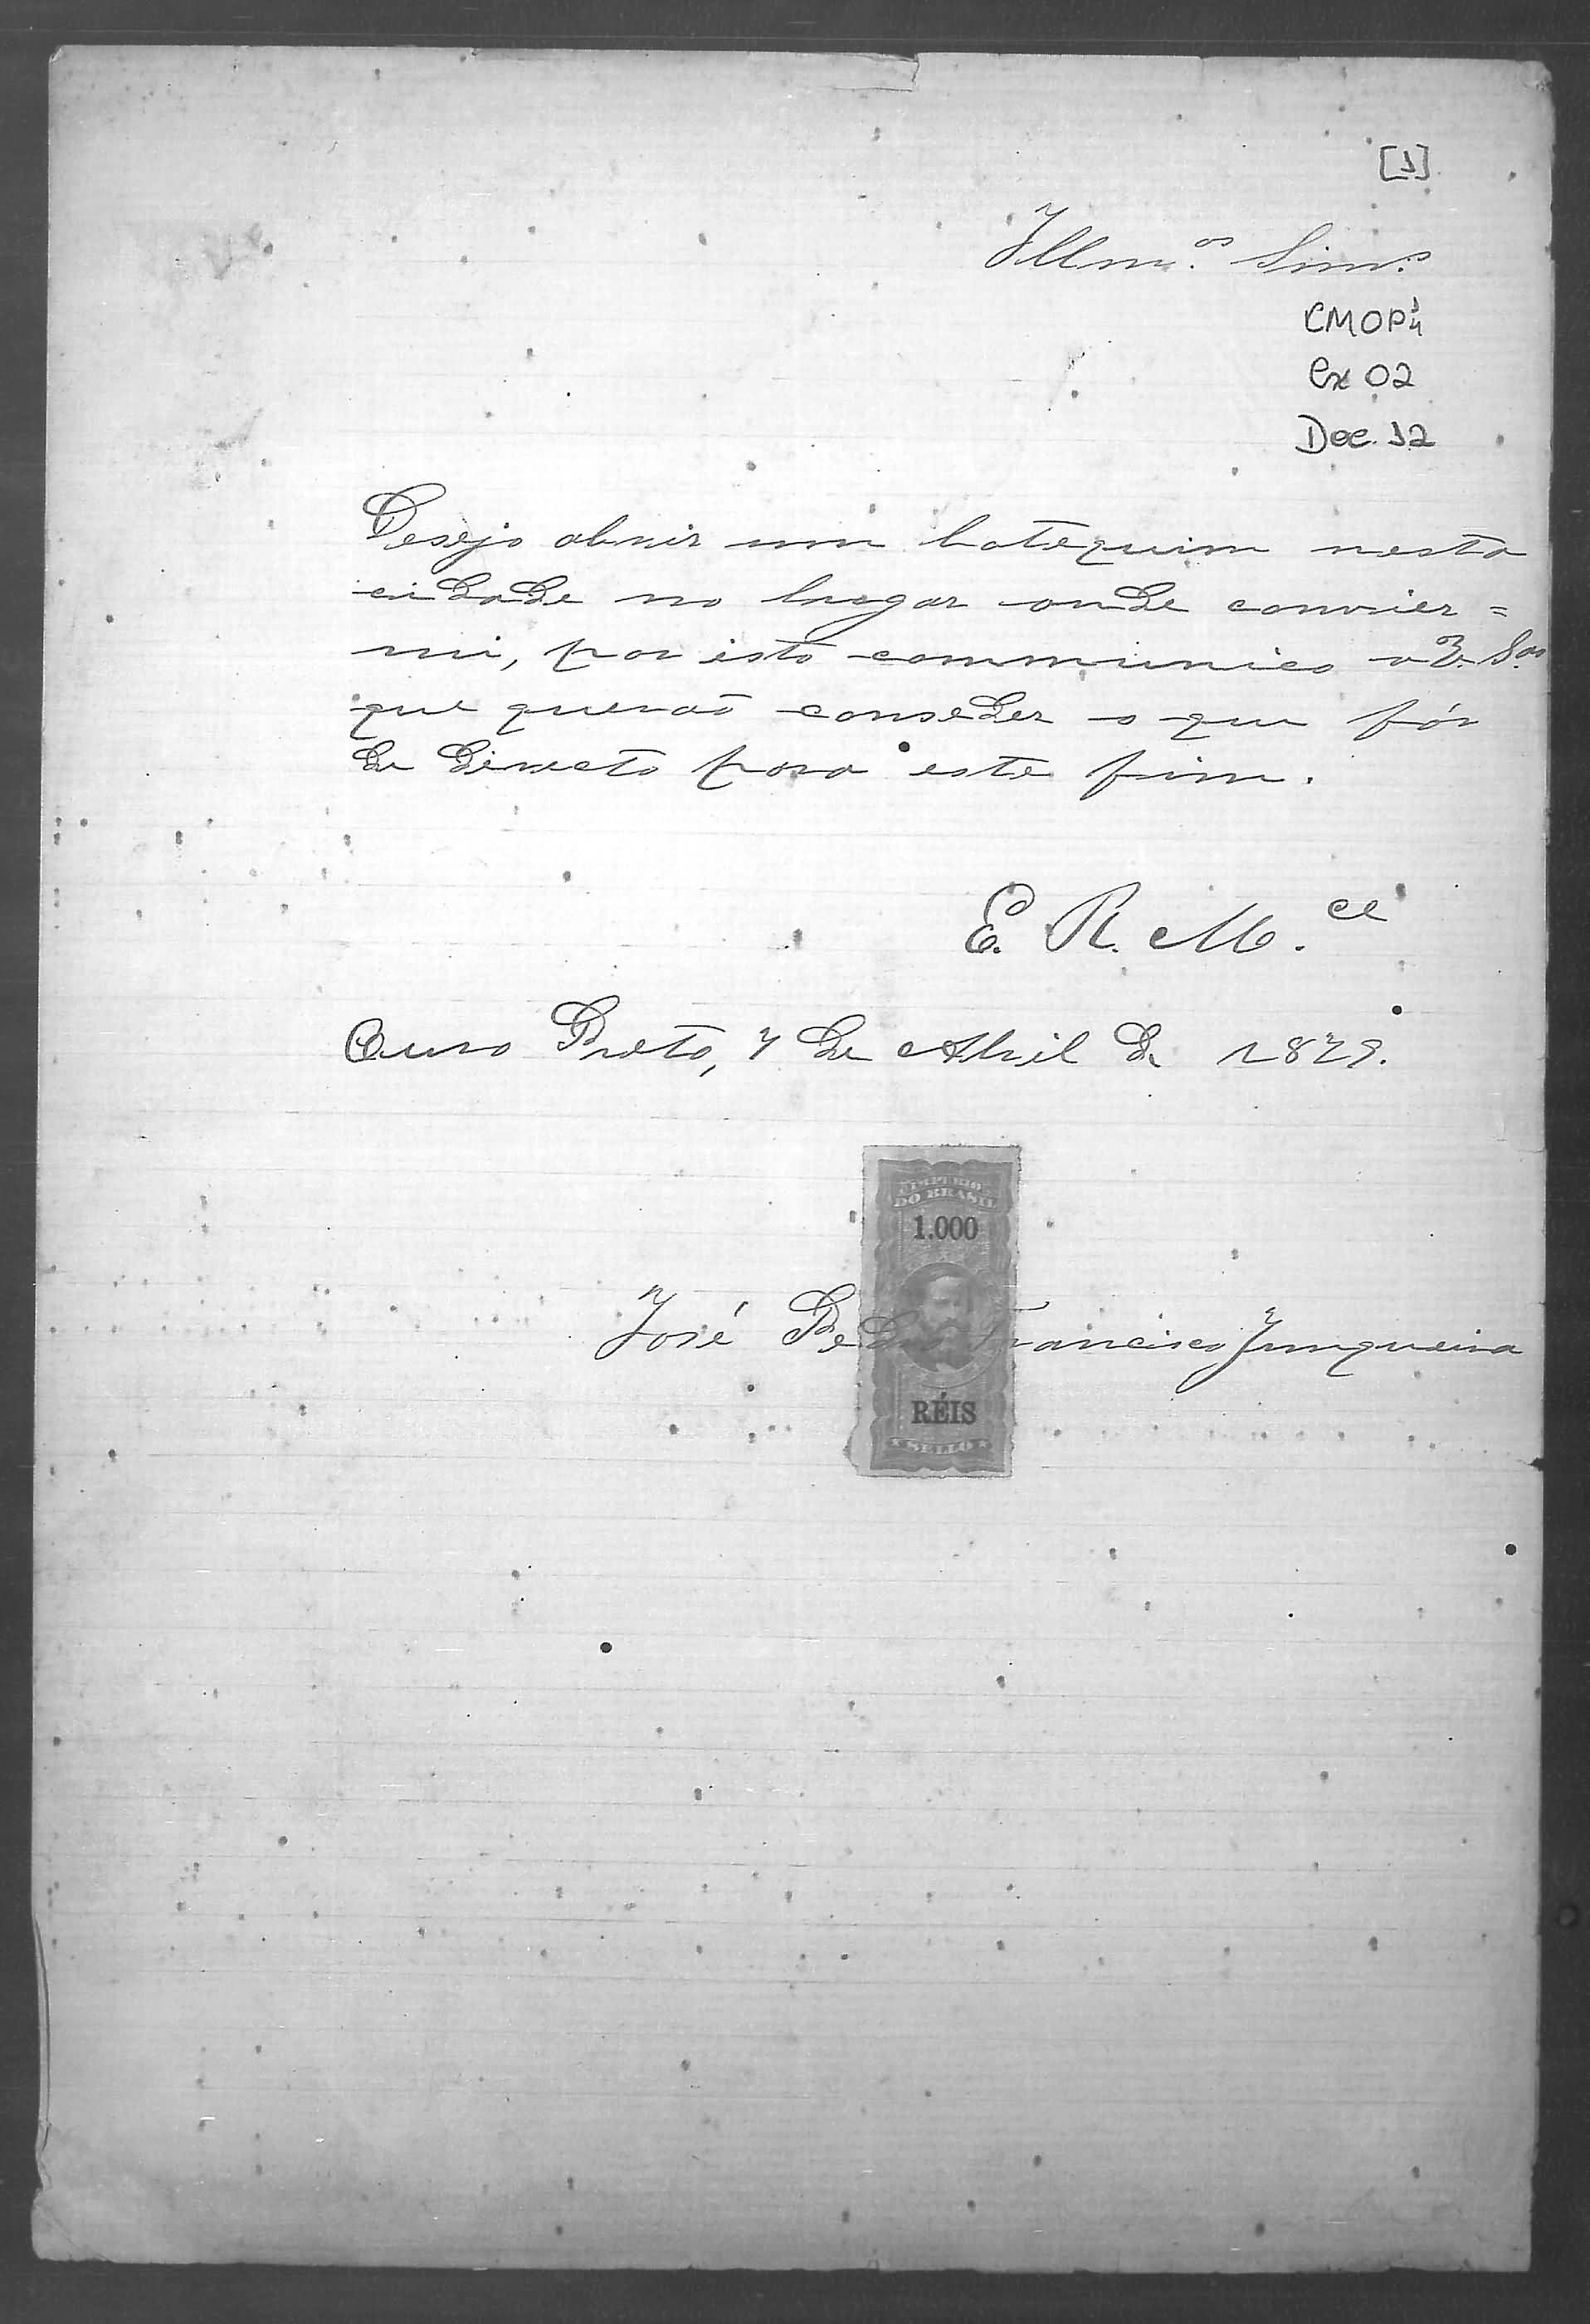 [1]
Illm.os Snrs.
CMOP 1/4
Cx 02
Doc. 12
Desejo abrir um botequim nesta
cidade no lugar onde convier=
mi, por isto communico a V. S.as
que queraõ conseder o que fôr
de directo para este fim.
E. R. M.ce
Ouro Preto, 7 de Abril de 1879.
IMPERIO
DO BRASIL
1.000
José Pedro Francisco Junqueira
RÉIS
SELLO